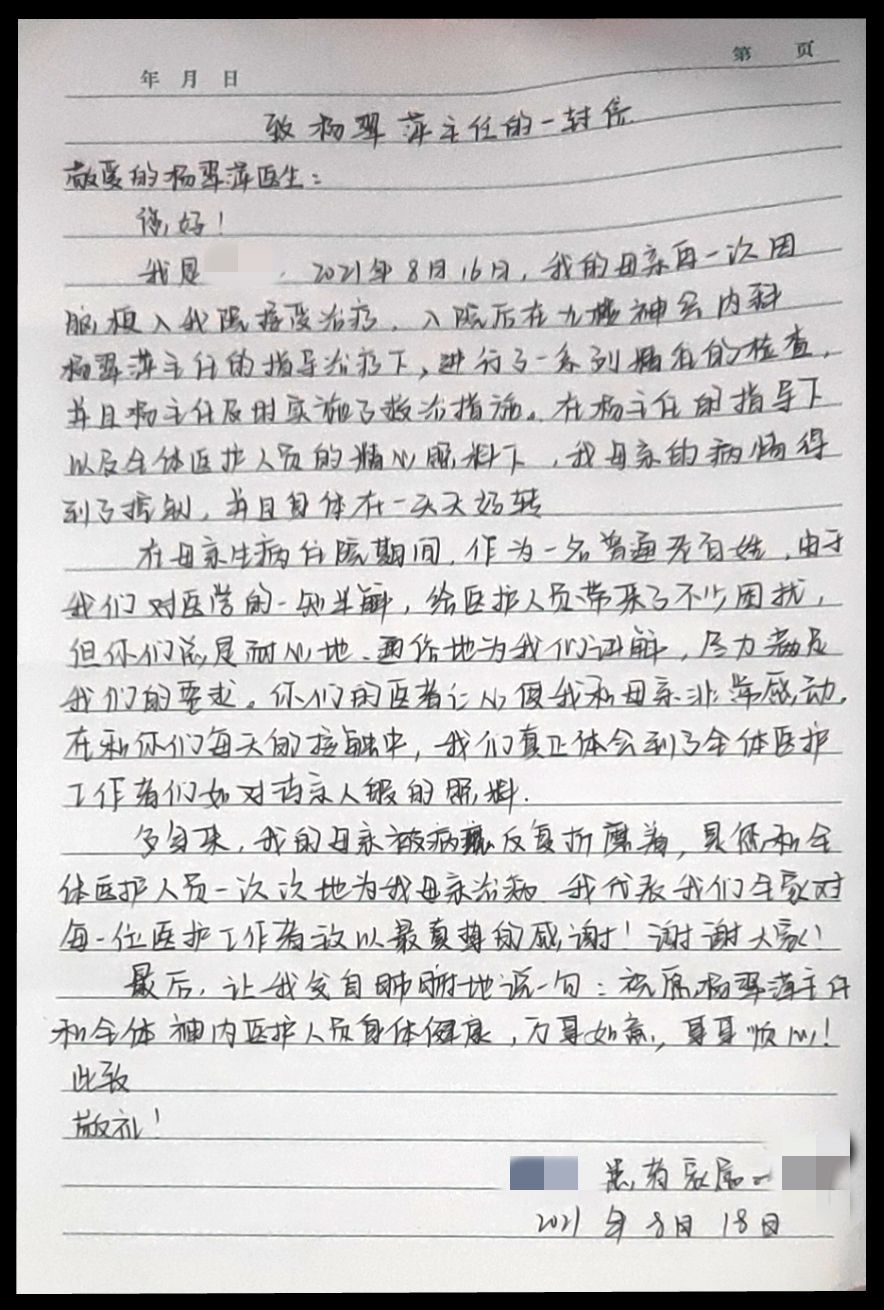 第 页
年 月 日
致杨翠萍主任的一封信
敬爱的杨翠萍医生：
您好！
我是 2021年8月16日，我的母亲再一次因
脑梗入我院接受治疗，入院后在九楼神经内科
杨翠萍主任的指导治疗下，进行了一系列精准的检查，
并且杨主任及时实施了救治措施。在杨主任的指导下
以及全体医护人员的精心照料下，我母亲的病情得
到了控制，并且身体在一天天好转
在母亲生病住院期间，作为一名普通老百姓，由于
我们对医学的一知半解，给医护人员带来了不少困扰，
但你们总是耐心地、细作地为我们讲解，尽力满足
我们的要求。你们的医者仁心使我和母亲非常感动，
在和你们每天的接触中，我们真正体会到了全体医护
工作者们如对待亲人般的照料.
多年来，我的母亲被病魔反复折磨着，是您和全
体医护人员一次次地为我母亲治病 我代表我们全家对
每一位医护工作者致以最真挚的感谢！谢谢大家！
最后，让我发自肺腑地说一句：祝愿杨翠萍主任
和全体神内医护人员身体健康，万事如意，事事顺心！
此致
敬礼！
患者家属
2021年8月18日